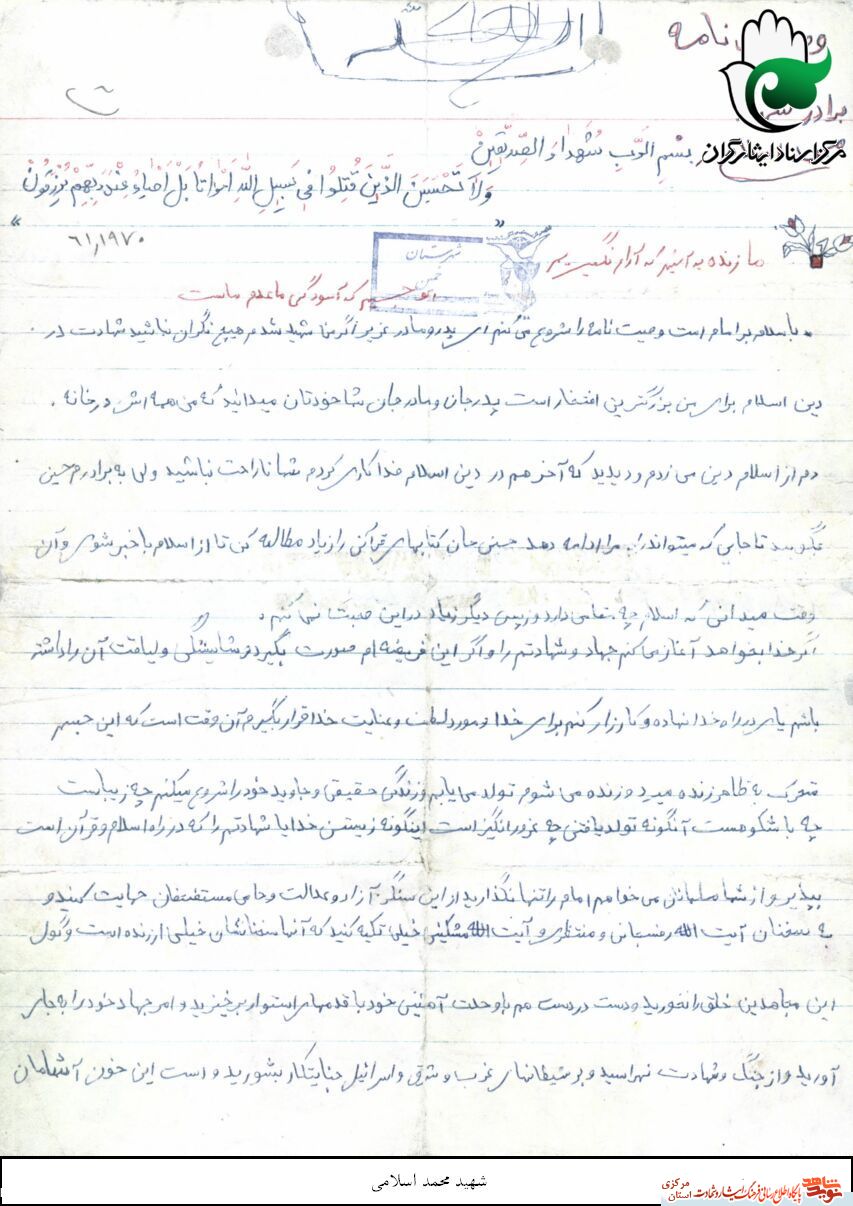 نامه
برادر
مرکز اسناد ایثارگران
بسم الرب شهداء الصدیقین
وَلاَ تَحْسَبَنَ الَّذینَ قُتِلُوا فی سَبیلِ اللهِ اَمْواتاً بَلْ اَحْیاءٌ عِنْدَ رَبِّهِمْ یُرْزَقُونْ
۶۱٫۱۹۷۰
شهرستان
خمین
ما زنده به آنیم که آرام نگیریم
موجیم که آسودگی ما عدم ماست
با سلام بر امام امت وصیت نامه را شروع می کنم ای پدر و مادر عزیز اگر من شهید شدم هیچ نگران نباشید شهادت در
دین اسلام برای من بزرگترین افتخار است پدر جان و مادر جان شما خودتان میدانید که من همه اش در خانه
دم از اسلام دین می زدم و دیدید که آخر هم در دین اسلام فداکاری کردم شما ناراحت نباشید ولی به برادرم حسین
بگویید تا جایی که میتواند راه مرا ادامه دهد حسین جان کتابهای قرآن را زیاد مطالعه کن تا از اسلام با خبر شوی و آن
وقت میدانی که اسلام چه مقامی دارد و پس دیگر زیاد در این صحبت نمی کنم
اگر خدا بخواهد آغاز می کنم جهاد و شهادتم را و اگر این فریضه ام صورت بگیرد و شایستگی و لیاقت آن را داشته
باشم پای در راه خدا نهاده و کارزار کنم برای خدا و مورد لطف و عنایت خدا قرار بگیرم آن وقت است که این جسم
متحرک به ظاهر زنده میرد و زنده می شوم تولد می یابم و زندگی حقیقی و جاوید خود را شروع میکنم چه زیباست
چه با شکوهست آنگونه تولد یافتنی چه غرور انگیز است اینگونه زیستن خدایا شهادتم را که در راه اسلام و قرآن است
بپذیر و از شما مسلمانان می خواهم امام را تنها نگذارید از این سنگر آزاد و عدالت و حامی مستضعفان حمایت کنید و
به سخنان آیت الله رفسنجانی و منتظری و آیت الله مشکینی خیلی تکیه کنید که آنها سخنانشان خیلی ارزنده است و گول
این مجاهدین خلق را نخورید و دست در دست هم با وحدت آهنینی خود با قدمهای استوار بر خیزید و امر جهاد خود را به جای
آورید و از جنگ و شهادت نهراسید و بر شیطانهای غرب و شرق و اسرائیل جنایتکار بشورید و است این خون آشامان
شهید محمد اسلامی
نوید شاهد
پایگاه اطلاع رسانی فرهنگ ایثار و شهادت استان مرکزی